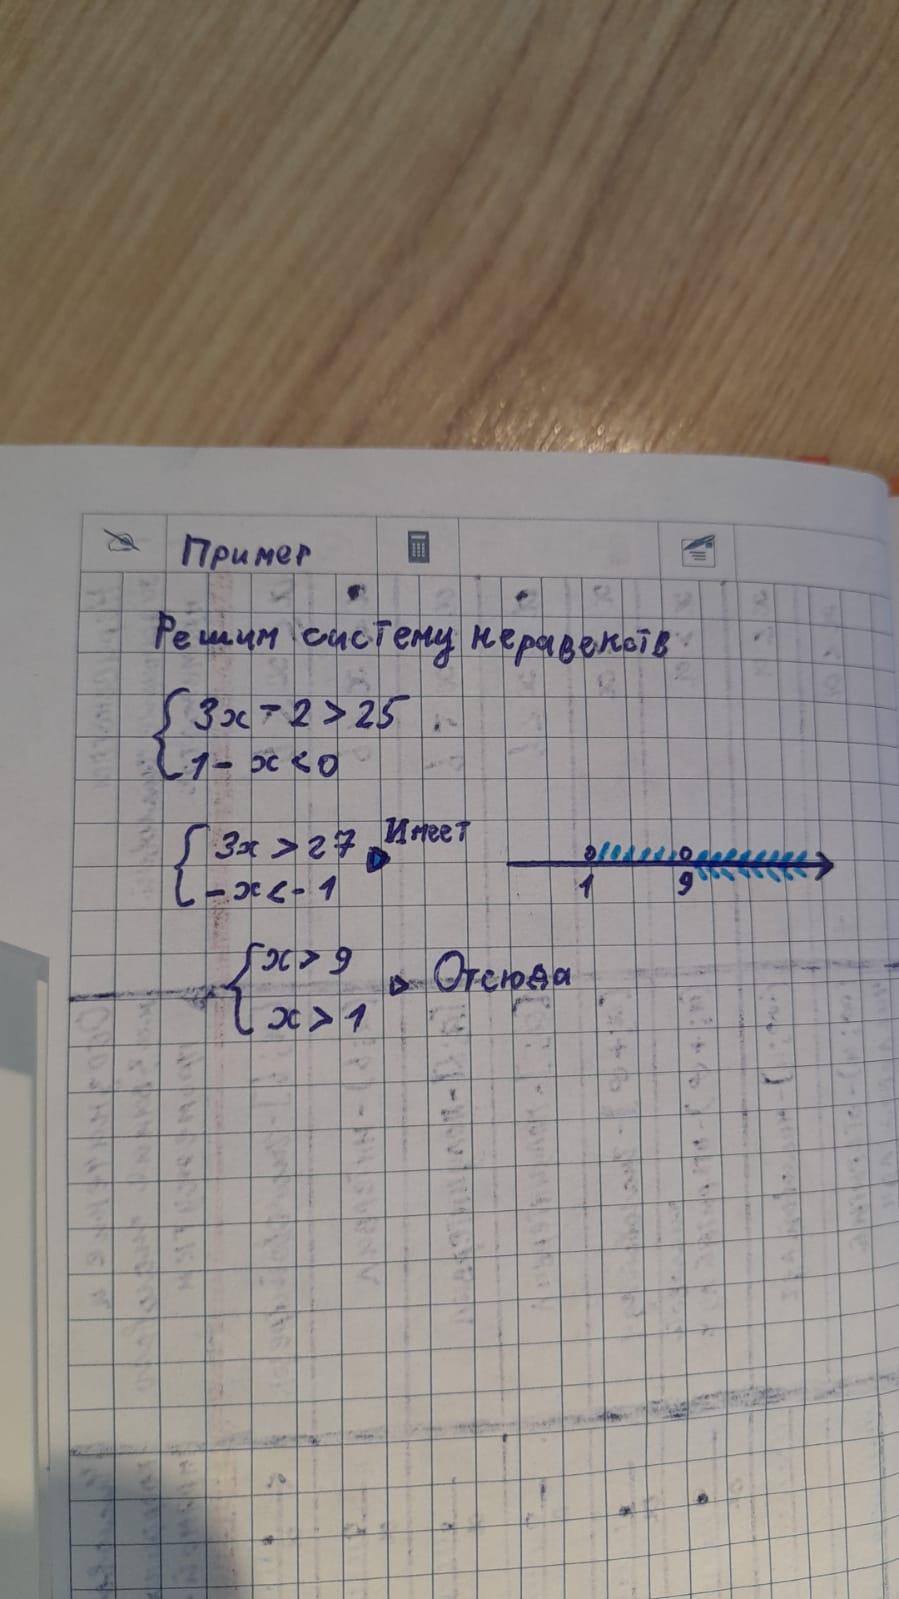 Пример
Решим систему неравенств
3x - 2 > 25
1 - x < 0
3x > 27 Имеет
-x < -1
1 9
x > 9
x > 1 Отсюда